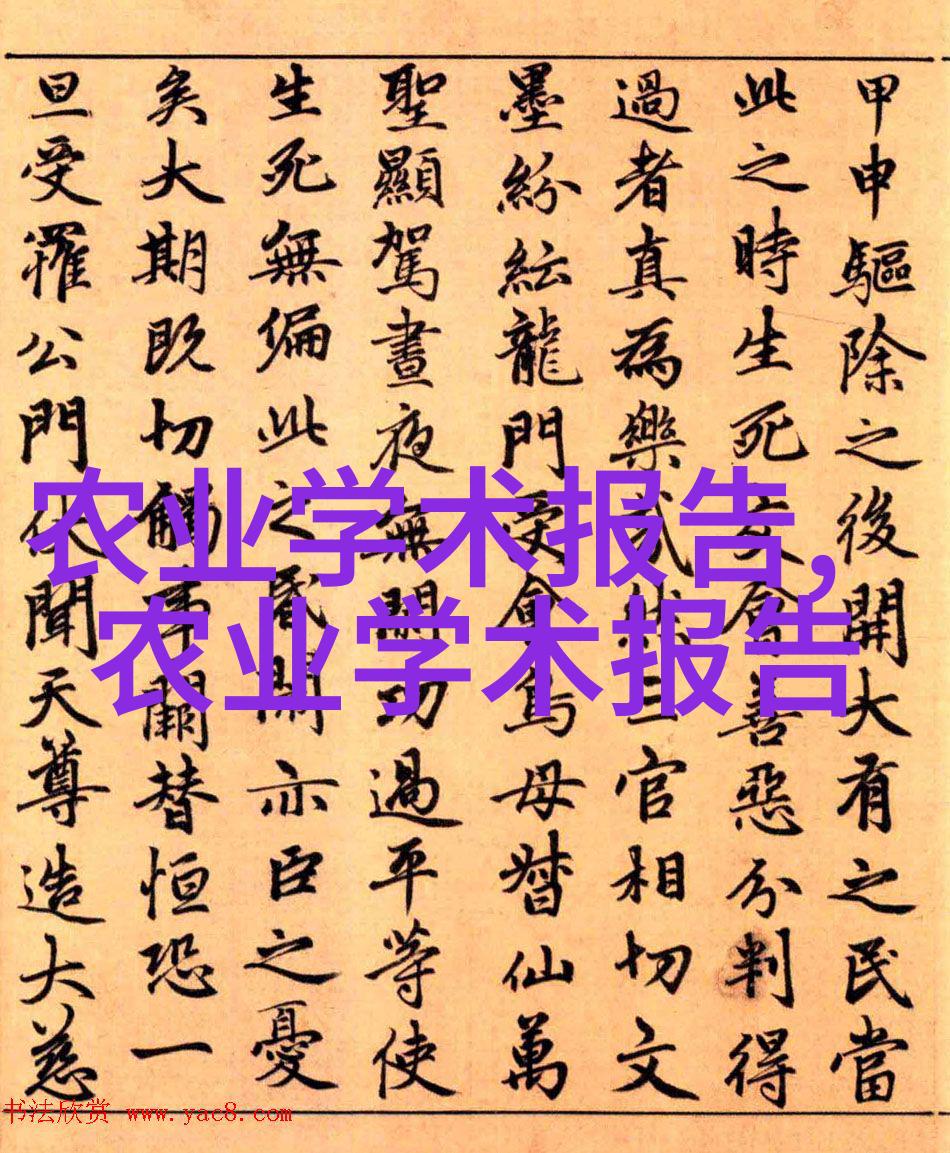 甲申驅除之後開大有之民當
此之時生死文會善惡分判得
過者真為樂哉然三官相切文
墨紛紜龍門受會鳥母督仙萬
聖顯駕晝夜無閑功過平等使
生死無偏此之昏閙亦臣之憂
矣大期既切觸事闕替恒恐一
旦受罹公門伏聞天尊造大慈
农业学术报告,
农业学术报告
书法欣赏 www.yac8.com